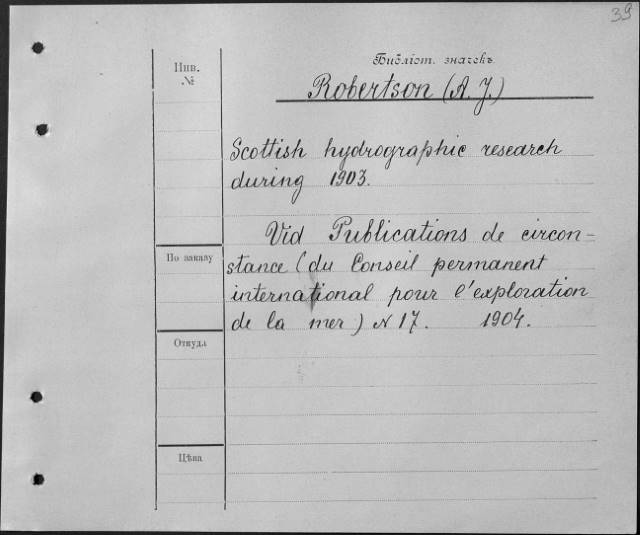 39
Библіот. значекъ
Инв.
№
Robertson (A. J.)
Scottish hydrographic research
during 1903.
Vid Publications de circon-
stance (du Conseil permanent
international pour l'exploration
de la mer) N 17. 1904.
По заказу
Откуда
Цѣна